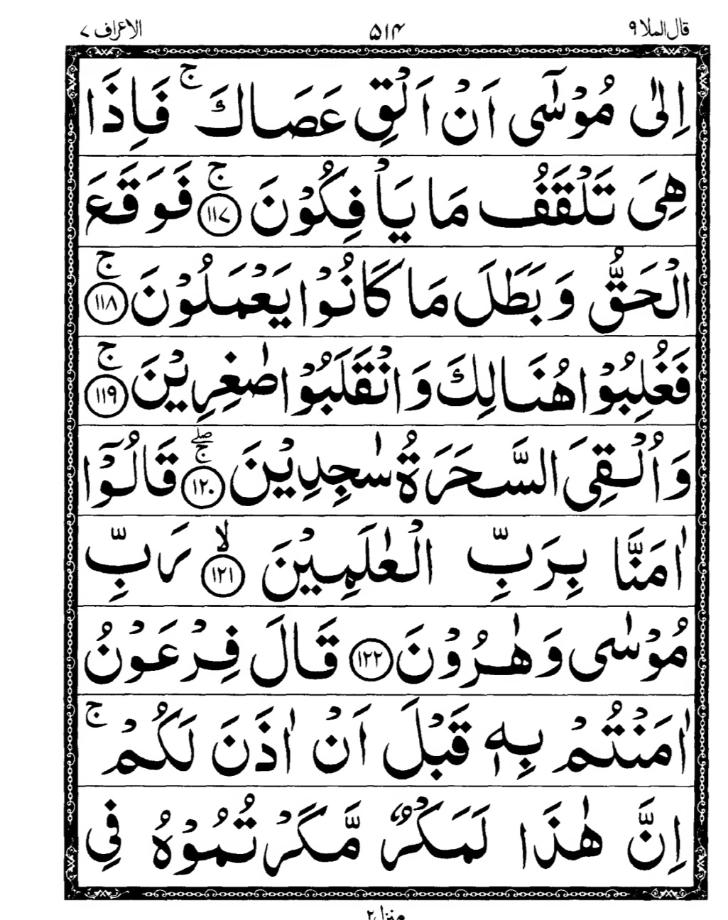 قال الملا ٩ ٥١٤ الاعراف ٧
اِلٰى مُوْسٰٓى اَنْ اَلْقِ عَصَاكَ ۚ فَاِذَا
هِىَ تَلْقَفُ مَا يَاْفِكُوْنَ ۚ‏﴿١١٧﴾ فَوَقَعَ
الْحَقُّ وَبَطَلَ مَا كَانُوْا يَعْمَلُوْنَ ۚ‏﴿١١٨﴾
فَغُلِبُوْا هُنَالِكَ وَانْقَلَبُوْا صٰغِرِيْنَ ۚ‏﴿١١٩﴾
وَاُلْقِىَ السَّحَرَةُ سٰجِدِيْنَ ۖۚ‏﴿١٢٠﴾ قَالُوْۤا
اٰمَنَّا بِرَبِّ الْعٰلَمِيْنَ ۙ‏﴿١٢١﴾ رَبِّ
مُوْسٰى وَهٰرُوْنَ ﴿١٢٢﴾ قَالَ فِرْعَوْنُ
اٰمَنْتُمْ بِهٖ قَبْلَ اَنْ اٰذَنَ لَكُمْ ۚ
اِنَّ هٰذَا لَمَكْرٌ مَّكَرْتُمُوْهُ فِى
منزل ٢